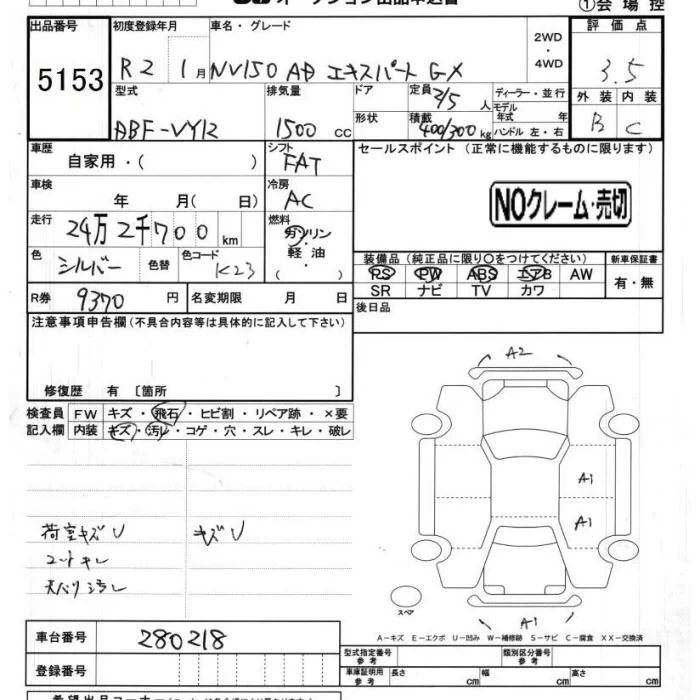 オークション出品申込書 ①会場控
出品番号 初度登録年月 車名・グレード 2WD・4WD 評価点
5153 R2 1月 NV150 AD エキスパート GX 3.5
型式 排気量 ドア 定員 2/5人 ディーラー・並行 外装 内装
ABF-VY12 1500cc 形状 積載 400/300kg モデル年式 年 ハンドル 左・右 B C
車歴 自家用・( ) シフト FAT セールスポイント (正常に機能するものに限ります)
車検 年 月( 日) 冷房 AC NOクレーム・売切
走行 24万2千700km 燃料 ガソリン・軽油・( )
色 シルバー 色替 色コード K23
装備品(純正品に限り○をつけてください) 新車保証書
PS PW ABS エアB AW 有・無
SR ナビ TV カワ
R券 9370円 名変期限 月 日 後日品
注意事項申告欄(不具合内容等は具体的に記入して下さい)
修復歴 有 〔箇所 〕
検査員記入欄 FW キズ・飛石・ヒビ割・リペア跡・×要
内装 キズ・汚れ・コゲ・穴・スレ・キレ・破レ
A2
A1
A1
荷室キズU キズU
シートキレ
天バリ汚レ
スペア
A1
A-キズ E-エクボ U-凹み W-補修跡 S-サビ C-腐食 XX-交換済
車台番号 280218
登録番号
型式指定番号 参考 類別区分番号 参考
車庫証明用 参考 長さ cm 幅 cm 高さ cm